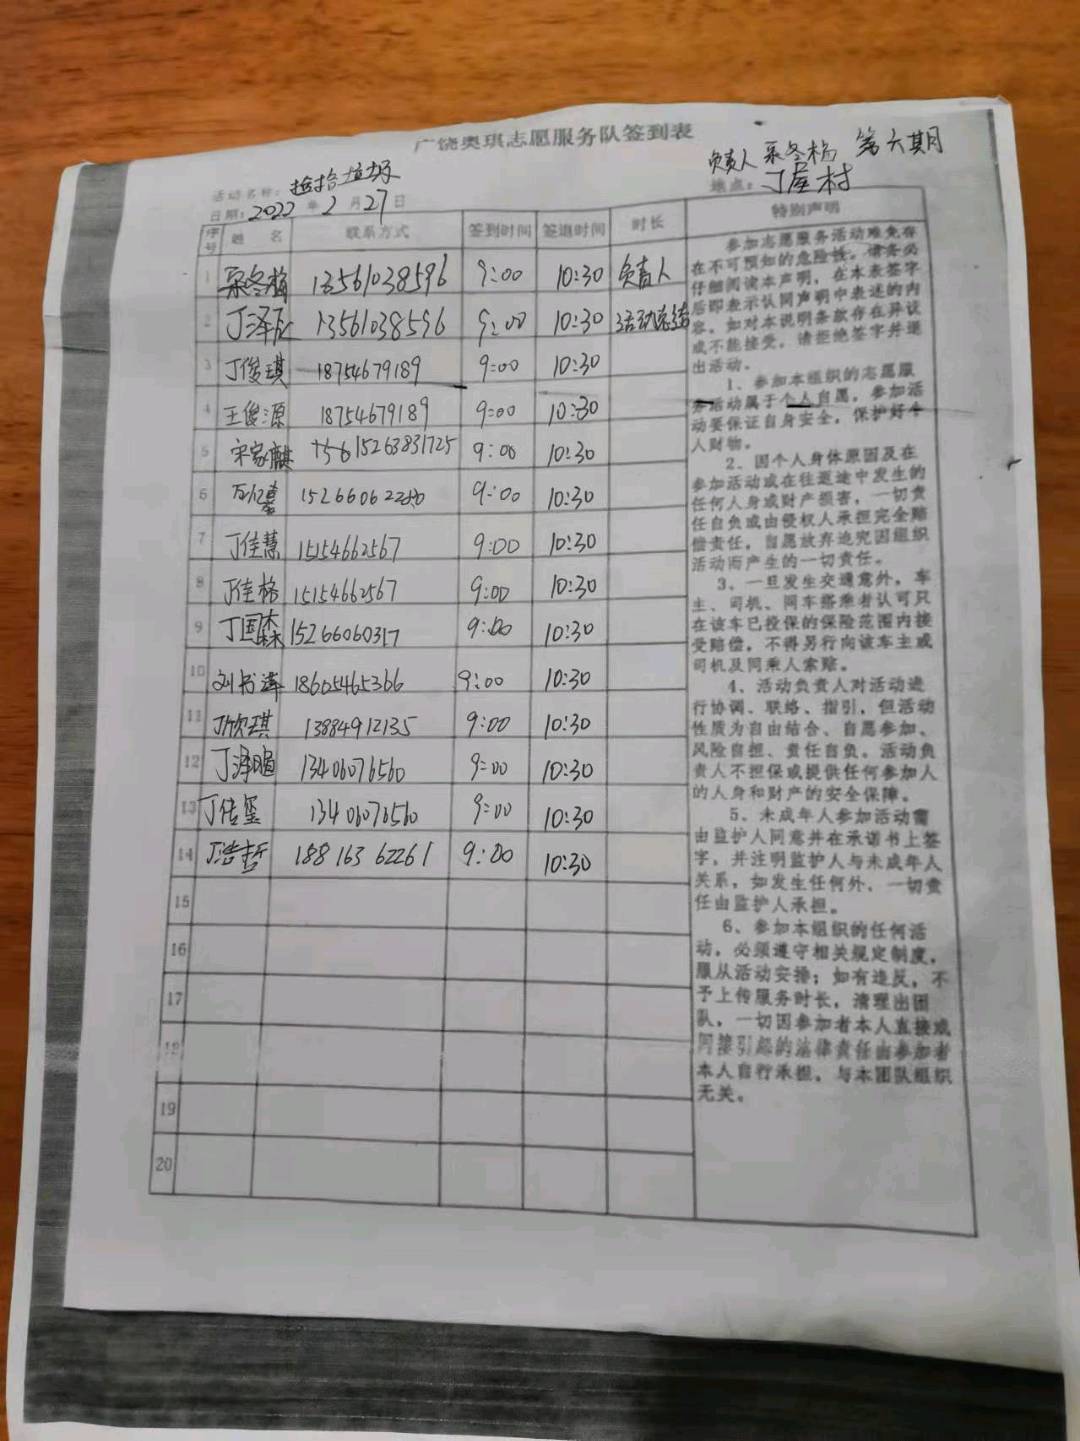 广饶奥琪志愿服务队签到表
负责人 采冬梅 第六期
活动名称：捡拾垃圾 地点：丁屋村
日期：2022年2月27日
序号 姓 名 联系方式 签到时间 签退时间 时长 特别声明
1 采冬梅 13561038596 9:00 10:30 负责人
2 丁泽辰 13561038596 9:00 10:30 活动总结
3 丁俊琪 18754679189 9:00 10:30
4 王俊源 18754679189 9:00 10:30
5 宋家麒 15263831725 9:00 10:30
6 9:00 10:30
7 丁佳慧 15154662567 9:00 10:30
8 丁佳格 15154662567 9:00 10:30
9 丁国森 15266060317 9:00 10:30
10 刘书泽 18605465366 9:00 10:30
11 丁欣琪 13884912135 9:00 10:30
12 13406076560 9:00 10:30
13 丁佳玺 13406076560 9:00 10:30
14 丁浩哲 18816362261 9:00 10:30
15
16
17
18
19
20
参加志愿服务活动难免存
在不可预知的危险性。请务必
仔细阅读本声明，在本表签字
后即表示认同声明中表述的内
容。如对本说明条款存在异议
或不能接受，请拒绝签字并退
出活动。
1、参加本组织的志愿服
务活动属于个人自愿，参加活
动要保证自身安全，保护好个
人财物。
2、因个人身体原因及在
参加活动或在往返途中发生的
任何人身或财产损害，一切责
任自负或由侵权人承担完全赔
偿责任，自愿放弃追究因组织
活动而产生的一切责任。
3、一旦发生交通意外，车
主、司机、同车搭乘者认可只
在该车已投保的保险范围内接
受赔偿，不得另行向该车主或
司机及同乘人索赔。
4、活动负责人对活动进
行协调、联络、指引，但活动
性质为自由结合、自愿参加、
风险自担、责任自负。活动负
责人不担保或提供任何参加人
的人身和财产的安全保障。
5、未成年人参加活动需
由监护人同意并在承诺书上签
字，并注明监护人与未成年人
关系，如发生任何外，一切责
任由监护人承担。
6、参加本组织的任何活
动，必须遵守相关规定制度，
服从活动安排；如有造反，不
予上传服务时长，清理出团
队，一切因参加者本人直接或
间接引起的法律责任由参加者
本人自行承担，与本团队组织
无关。